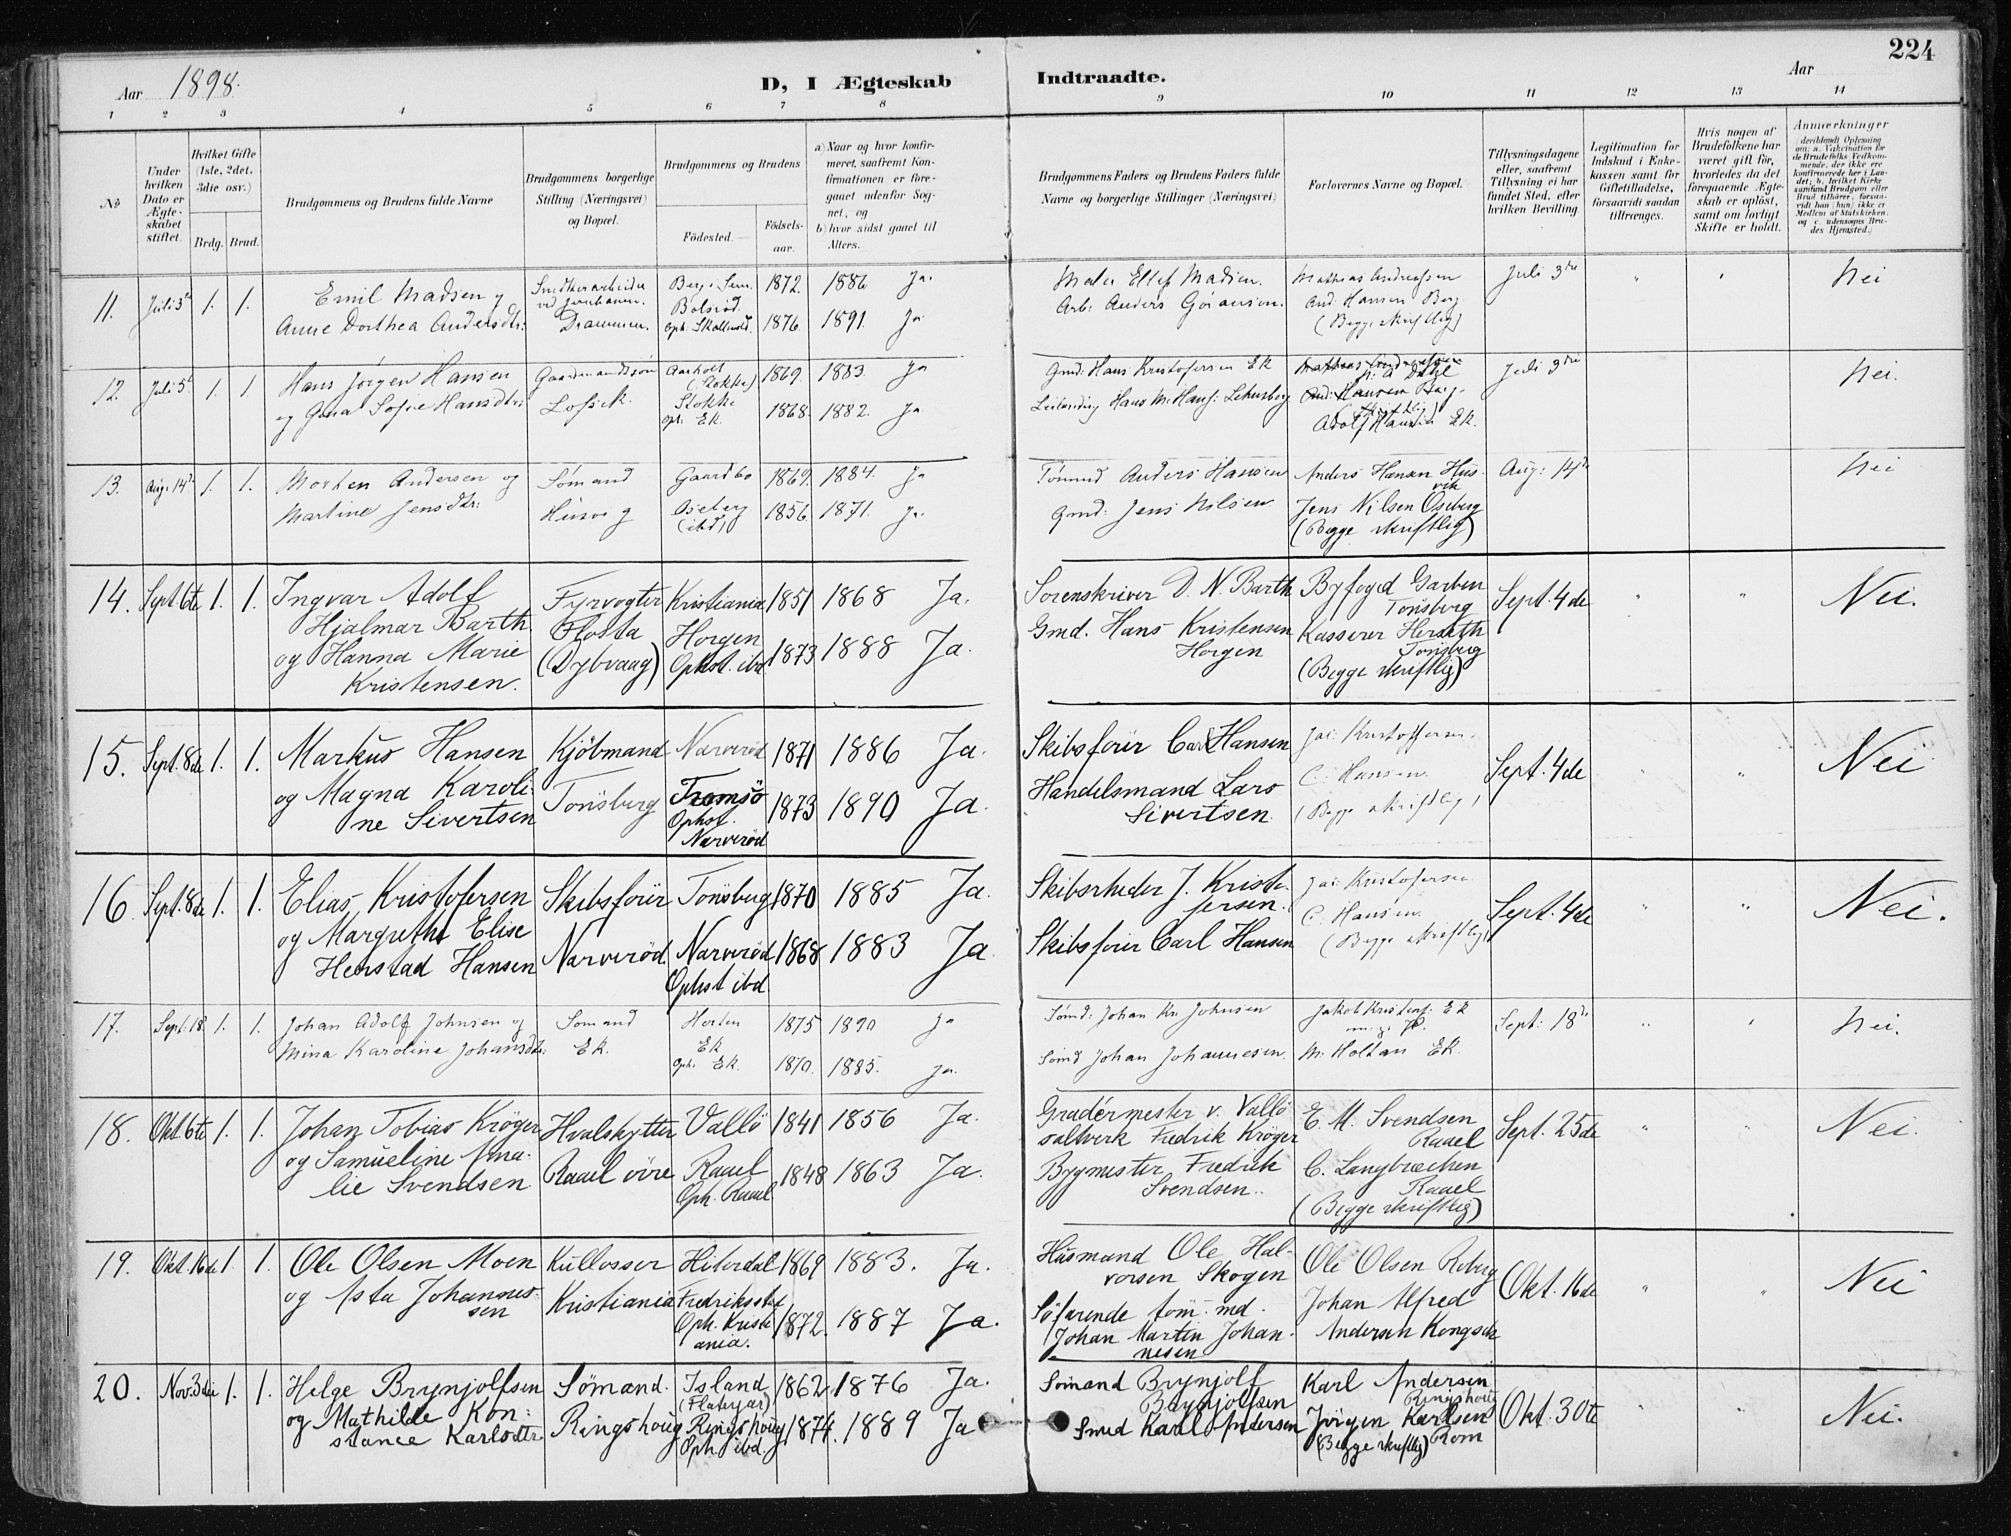 224
Aar 1898.
D, I Ægteskab Indtraadte.
Aar
1 2 3 4 5 6 7 8 9 10 11 12 13 14
No
Under hvilken Dato er Ægteskabet stiftet.
Hvilket Gifte (1ste, 2det, 3die osv.)
Brdg. Brud.
Brudgommens og Brudens fulde Navne
Brudgommens borgerlige Stilling (Næringsvei) og Bopæl.
Brudgommens og Brudens
Födested. Födselsaar.
a) Naar og hvor konfirmeret, saafremt Konfirmationen er foregaaet udenfor Sognet, og
b) hvor sidst gaaet til Alters.
Brudgommens Faders og Brudens Faders fulde Navne og borgerlige Stillinger (Næringsvei)
Forlovernes Navne og Bopæl.
Tillysningsdagene eller, saafremt Tillysning ei har fundet Sted, efter hvilken Bevilling.
Legitimation for Indskud i Enkekassen samt for Giftetilladelse, forsaavidt saadan tiltrænges.
Hvis nogen af Brudefolkene har været gift för, hvorledes da det foregaaende Ægteskab er oplöst, samt om lovligt Skifte er holdt.
Anmærkninger
11. Juli 3die 1. 1. Emil Madsen og
Anne Dorthea Andersdtr:
Drammen.
Bolsröd.
1872. 1886 Ja.
1876. 1891. Ja
Ellef Madsen.
Arb: Anders Göransen.
Mathias Andreassen
And. Hansen Berg
(Begge skriftlig)
Juli 3die
Nei
12. Juli 5te 1. 1 Hans Jörgen Hansen
og Gina Sofie Hansdtr:
Gaardmandssön
Aarholt
(Stokke)
Stokke
oph. Ek.
1869. 1883. Ja
1868. 1882. Ja.
Gmd: Hans Kristofersen Ek
Adolf Hansen Ek.
Juli 3die
Nei.
13. Aug: 14de 1. 1. Morten Andersen og
Martine Jensdtr:
Sömand
Gaardbo
Oseberg
(ibd)
1869. 1884. Ja
1856. 1871. Ja.
Tömmd Anders Hansen
Gmd: Jens Nilsen
Anders Hansen Husvik
Jens Nilsen Oseberg
(Begge skriftlig)
Aug: 14de
Nei
14. Sept. 6te 1. 1. Ingvar Adolf
Hjalmar Barth
og Hanna Marie
Kristensen.
Fyrvogter
Flosta
(Dybvaag)
Kristiania
Horgen
Ophst. ibd
1851 1868 Ja.
1873 1888 Ja.
Sorenskriver D. N. Barth
Gmd. Hans Kristensen
Horgen
Byfoged Garben
Tönsberg
Kasserer Herseth
Tönsberg
(Begge skriftlig)
Sept. 4de
Nei.
15. Sept. 8de 1. 1. Markus Hansen
og Magna Karoline
Sivertsen
Kjöbmand
Tönsberg
Narveröd
Tromsö
Ophst.
Narveröd
1871 1886 Ja.
1873 1890 Ja.
Skibsförer Carl Hansen
Handelsmand Lars
Sivertsen
Jac: Kristoffersen.
C. Hansen.
(Begge skriftlig)
Sept. 4de
Nei
16. Sept. 8de 1. 1. Elias Kristofersen
og Margrethe Elise
Herstad Hansen
Skibsförer
Narveröd
Tönsberg
Narveröd
Ophst ibd
1870 1885 Ja.
1868 1883 Ja.
Skibsrheder J. Kristofersen.
Skibsförer Carl Hansen
Jac: Kristofersen
C. Hansen.
(Begge skriftlig)
Sept. 4de
Nei.
17. Sept. 18. 1. 1. Johan Adolf Johnsen og
Mina Karoline Johansdtr:
Sömand
Ek.
Horten
Ek
oph. Ek.
1875 1890 Ja
1870. 1885. Ja.
Sömd: Johan Kr. Johnsen
Sömd Johan Johannesen.
M. Holtan Ek.
Sept: 18de
Nei.
18. Okt. 6te 1. 1. Johan Tobias Kröger
og Samueline Amalie
Svendsen
Hvalskytter
Raael övre
Vallö
Raael
Oph. Raael
1841 1856 Ja.
1848 1863 Ja.
Gradérmester v. Vallö
saltverk Fredrik Kröger
Bygmester Fredrik
Svendsen.
E. M. Svendsen
Raael
C. Langbrækken
Raael
(Begge skriftlig)
Sept. 25de
Nei.
19. Okt. 16de 1. 1. Ole Olsen Moen
og Asta Johannessen
Kullosser
Kristiania
Hiterdal
Fredriksstad
Oph. Kristiania.
1869 1883. Ja.
1872. 1887 Ja.
Husmand Ole Halvorsen
Skogen
Söfarende tömmd.
Johan Martin Johannesen
Ole Olsen Roberg
Johan Alfred
Andersen
Okt. 16de
Nei
20. Nov. 3die 1. 1. Helge Brynjolfsen
og Mathilde Konstance
Karlsdtr.
Sömand.
Ringshoug
Island
(Flateyar)
Ringshoug
Oph. ibd.
1862 1876 Ja.
1874. 1889 Ja
Sömand Brynjolf
Brynjolfsen
Smed Karl Andersen
Karl Andersen
Ringshoug
Jörgen Karlsen
(Begge skriftlig) Rom
Okt. 30te
Nei.